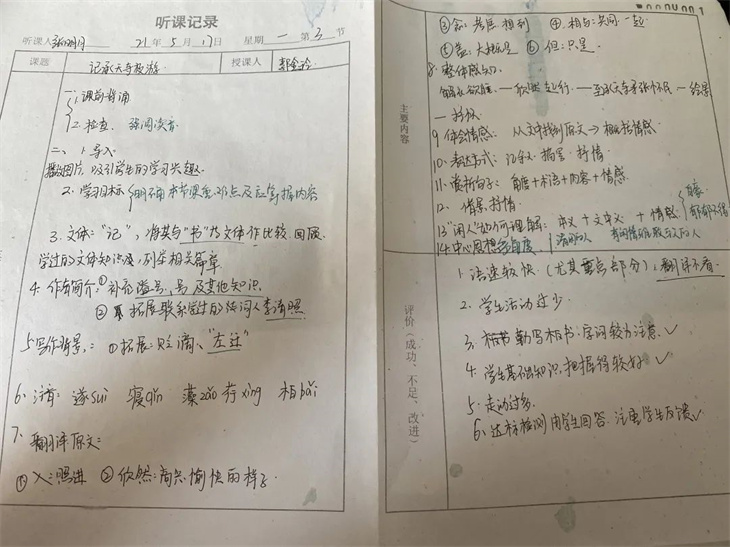 听课记录
听课人 21年5月17日 星期一 第3节
课题 记承天寺夜游 授课人
一、1.课前背诵
2.检查、强调读音
二、1.导入
播放图片,以引学生的学习兴趣
2.学习目标 明确本节课重难点及应掌握内容
3.文体:“记”,将其与“书”的文体作比较.回顾
学过的文体知识及,列举相关篇章.
4.作者简介:①补充谥号、号及其他知识.
②拓展联系学过的宋词人李清照.
5写作背景:①拓展:贬谪、“左迁”
6.注音:遂suì 寝qǐn 藻zǎo 荇xìng 柏bǎi
7.翻译原文:
①入:照进 ②欣然:高兴愉快的样子
主要内容
③念:考虑 想到 ④.相与:共同.一起
⑤盖:大概是 ⑥但:只是.
8.整体感知.
解衣欲睡—欣然起行—至承天寺寻张怀民—绘景
—抒叹
9.体会情感: 从文中找到原文→概括情感
10.表达方式:记叙文 描写 抒情
11.赏析句子:角度+术语+内容+情感
12.情景.抒情.
13“闲人”如何理解:本义+文中义+情感
清闲的人
郁郁不得
14.中心思想
评价(成功、不足、改进)
1.语速较快.(尤其重点部分)、翻译不看.
2.学生活动过少.
3.勤写板书:字词较为注意.✓
4.学生基础知识.把握得较好 ✓
5.走动过多.
6.达标检测由学生回答.注重学生反馈✓